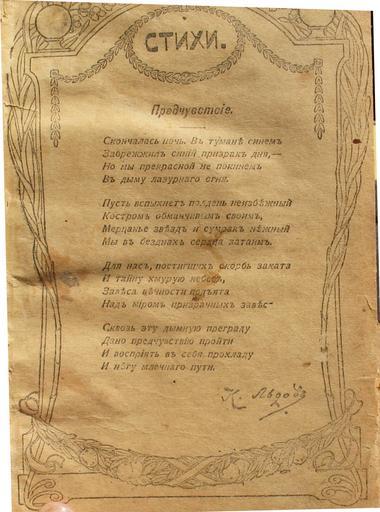 СТИХИ.
Предчувствіе.
Скончалась ночь. Въ туманѣ синемъ
Забрежжилъ синій призракъ дня,—
Но мы прекрасной не покинемъ
Въ дыму лазурнаго огня.
Пусть вспыхнетъ полдень неизбѣжный
Костромъ обманчивымъ своимъ,
Мерцанье звѣздъ и сумракъ нѣжный
Мы въ безднахъ сердца затаимъ.
Для насъ, постигшихъ скорбь заката
И тайну хмурую небесъ,
Завѣса вѣчности поднята
Надъ міромъ призрачныхъ завѣс-
Сквозь эту дымную преграду
Дано предчувствію пройти
И воспріять въ себя прохладу
И нѣгу млечнаго пути.
К.